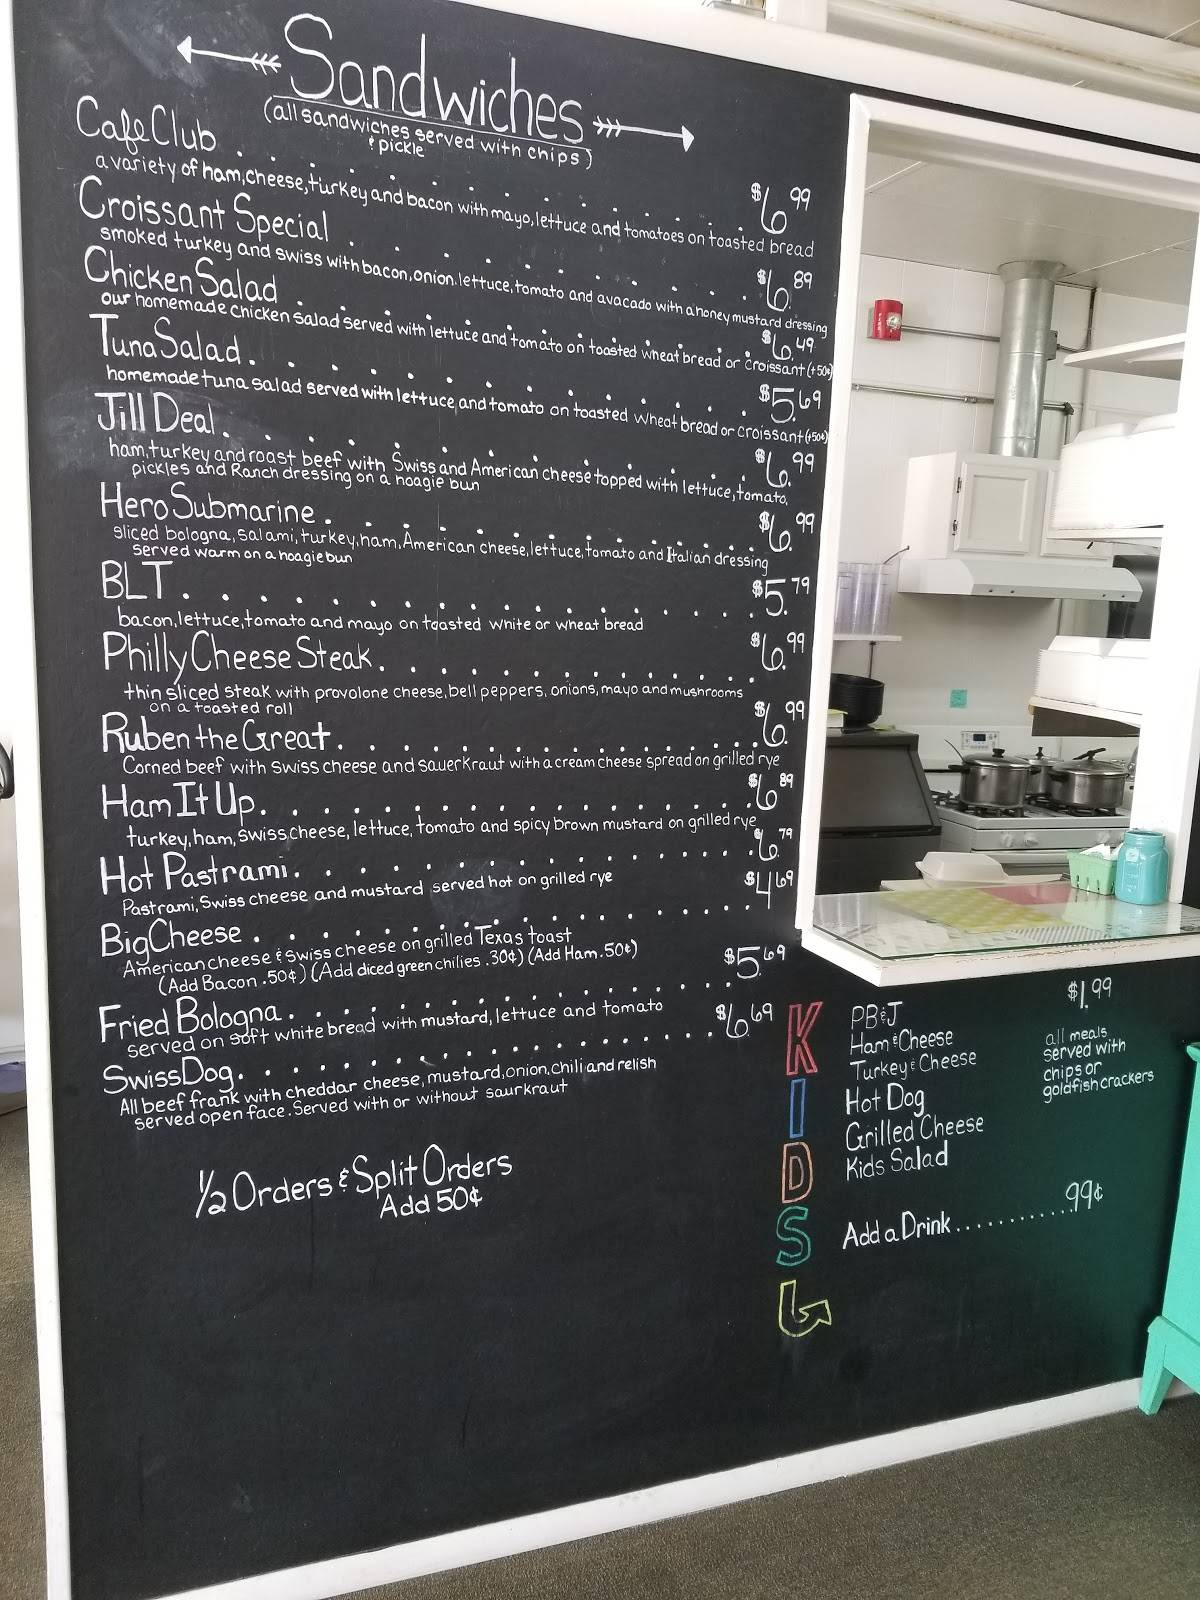 Sandwiches
(all sandwiches served with chips)
& pickle
Cafe Club . . . . . . . . . . . . $6.99
a variety of ham, cheese, turkey and bacon with mayo, lettuce and tomatoes on toasted bread
Croissant Special . . . . . . . . . . $6.89
smoked turkey and swiss with bacon, onion, lettuce, tomato and avacado with a honey mustard dressing
Chicken Salad . . . . . . . . . . . $6.49
our homemade chicken salad served with lettuce and tomato on toasted wheat bread or croissant (+50¢)
Tuna Salad . . . . . . . . . . . . $5.69
homemade tuna salad served with lettuce and tomato on toasted wheat bread or croissant (+50¢)
Jill Deal . . . . . . . . . . . . . $6.99
ham, turkey and roast beef with Swiss and American cheese topped with lettuce, tomato,
pickles and Ranch dressing on a hoagie bun
Hero Submarine . . . . . . . . . . . $6.99
sliced bologna, salami, turkey, ham, American cheese, lettuce, tomato and Italian dressing
served warm on a hoagie bun
BLT . . . . . . . . . . . . . . . $5.79
bacon, lettuce, tomato and mayo on toasted white or wheat bread
Philly Cheese Steak . . . . . . . . . . $6.99
thin sliced steak with provolone cheese, bell peppers, onions, mayo and mushrooms
on a toasted roll
Ruben the Great . . . . . . . . . . . $6.99
Corned beef with swiss cheese and sauerkraut with a cream cheese spread on grilled rye
Ham It Up . . . . . . . . . . . . . $6.89
turkey, ham, swiss cheese, lettuce, tomato and spicy brown mustard on grilled rye
Hot Pastrami . . . . . . . . . . . . $6.79
Pastrami, Swiss cheese and mustard served hot on grilled rye
Big Cheese . . . . . . . . . . . . . $4.69
American cheese & Swiss cheese on grilled Texas toast
(Add Bacon .50¢) (Add diced green chilies .30¢) (Add Ham .50¢)
Fried Bologna . . . . . . . . . . . . $5.69
served on soft white bread with mustard, lettuce and tomato
Swiss Dog . . . . . . . . . . . . . $6.69
All beef frank with cheddar cheese, mustard, onion, chili and relish
served open face. Served with or without saurkraut
1/2 Orders & Split Orders
Add 50¢
KIDS
$1.99
PB&J
Ham & Cheese
Turkey & Cheese
Hot Dog
Grilled Cheese
Kids Salad
all meals
served with
chips or
goldfish crackers
Add a Drink . . . . . . . . . . . 99¢